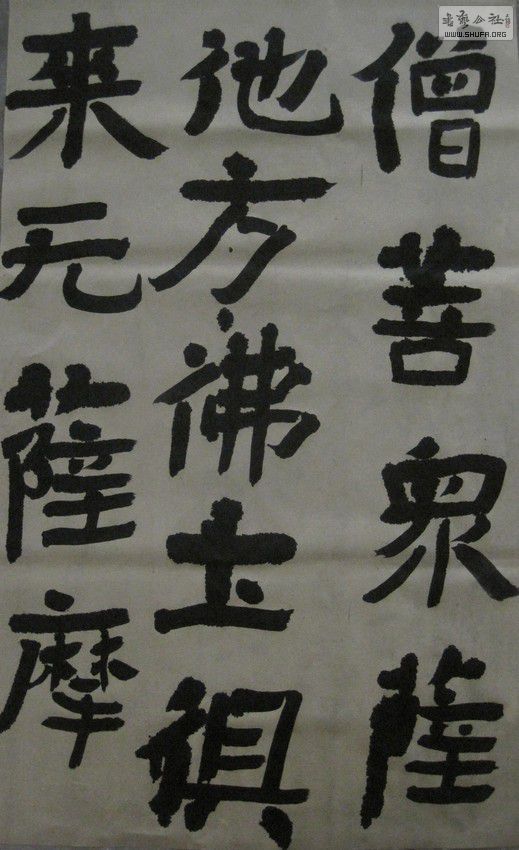 書藝公社
WWW.SHUFA.ORG
僧菩眾薩
他方佛土俱
来元薩摩